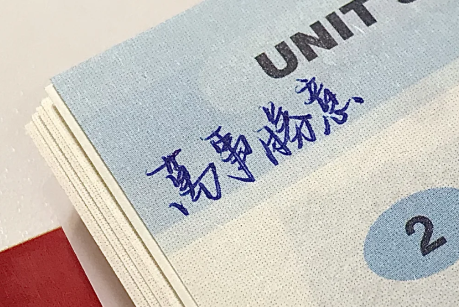 UNIT
萬事勝意
2